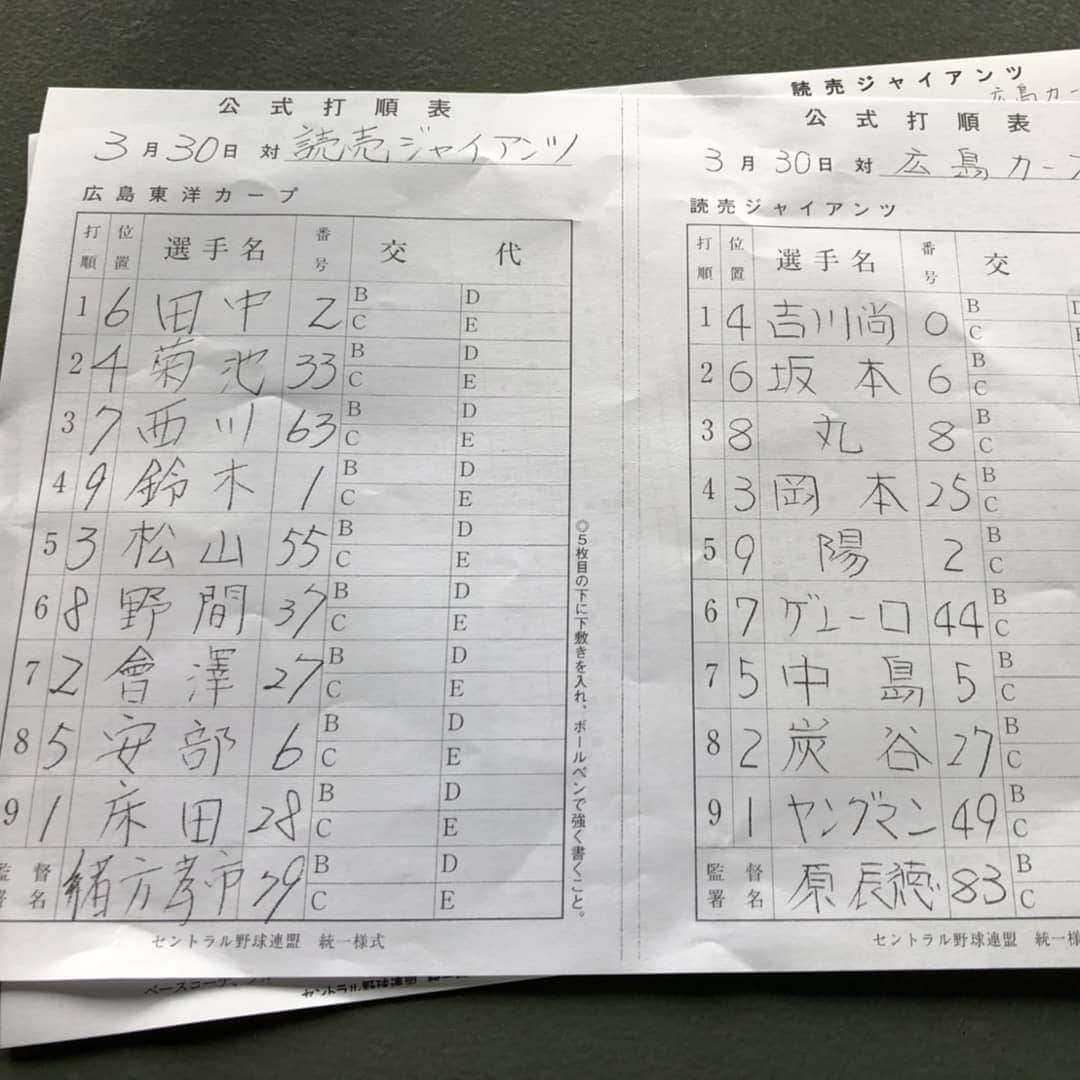 読売ジャイアンツ
広島カー
公式打順表
3月30日 対 読売ジャイアンツ
広島東洋カープ
打順 位置 選手名 番号 交代
1 6 田中 2 B D C E
2 4 菊池 33 B D C E
3 7 西川 63 B D C E
4 9 鈴木 1 B D C E
5 3 松山 55 B D C E
6 8 野間 37 B D C E
7 2 會澤 27 B D C E
8 5 安部 6 B D C E
9 1 床田 28 B D C E
監督署名 緒方孝市 79 B D C E
セントラル野球連盟 統一様式
◎5枚目の下に下敷きを入れ、ボールペンで強く書くこと。
公式打順表
3月30日 対 広島カープ
読売ジャイアンツ
打順 位置 選手名 番号 交
1 4 吉川尚 0 B D C E
2 6 坂本 6 B C
3 8 丸 8 B C
4 3 岡本 25 B C
5 9 陽 2 B C
6 7 ゲレーロ 44 B C
7 5 中島 5 B C
8 2 炭谷 27 B C
9 1 ヤングマン 49 B C
監督署名 原辰徳 83 B C
セントラル野球連盟 統一様